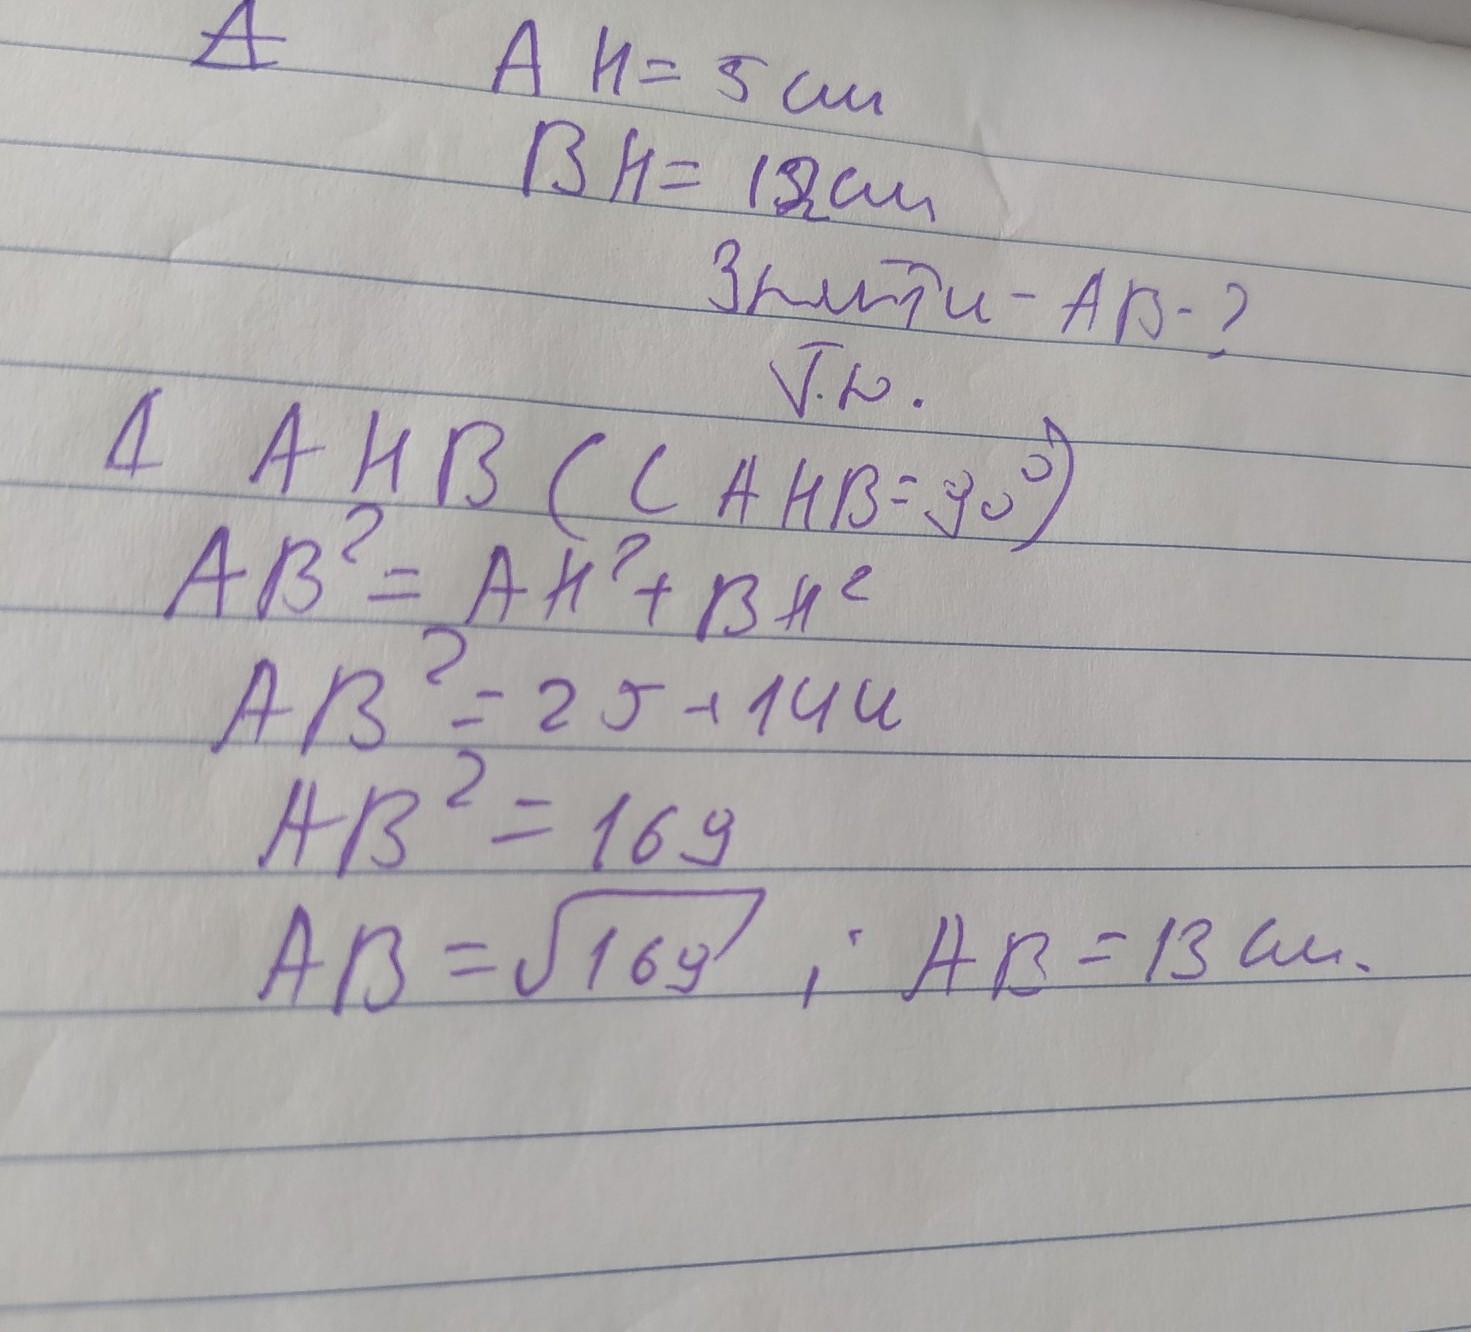 A AH = 5 см
BH = 12 см
Знайти - AB - ?
Т.к.
Δ AHB (∠AHB = 90°)
AB² = AH² + BH²
AB² = 25 + 144
AB² = 169
AB = √169 ; AB = 13 см.